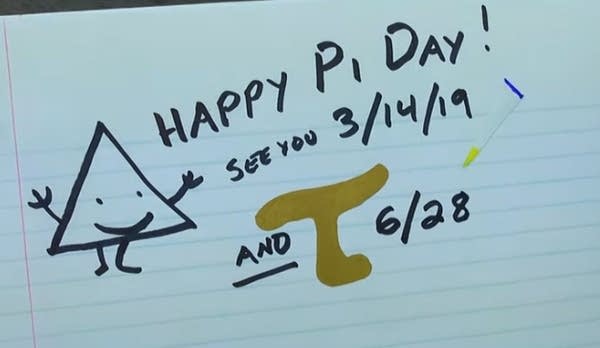 HAPPY PI DAY!
SEE YOU 3/14/19
AND τ 6/28